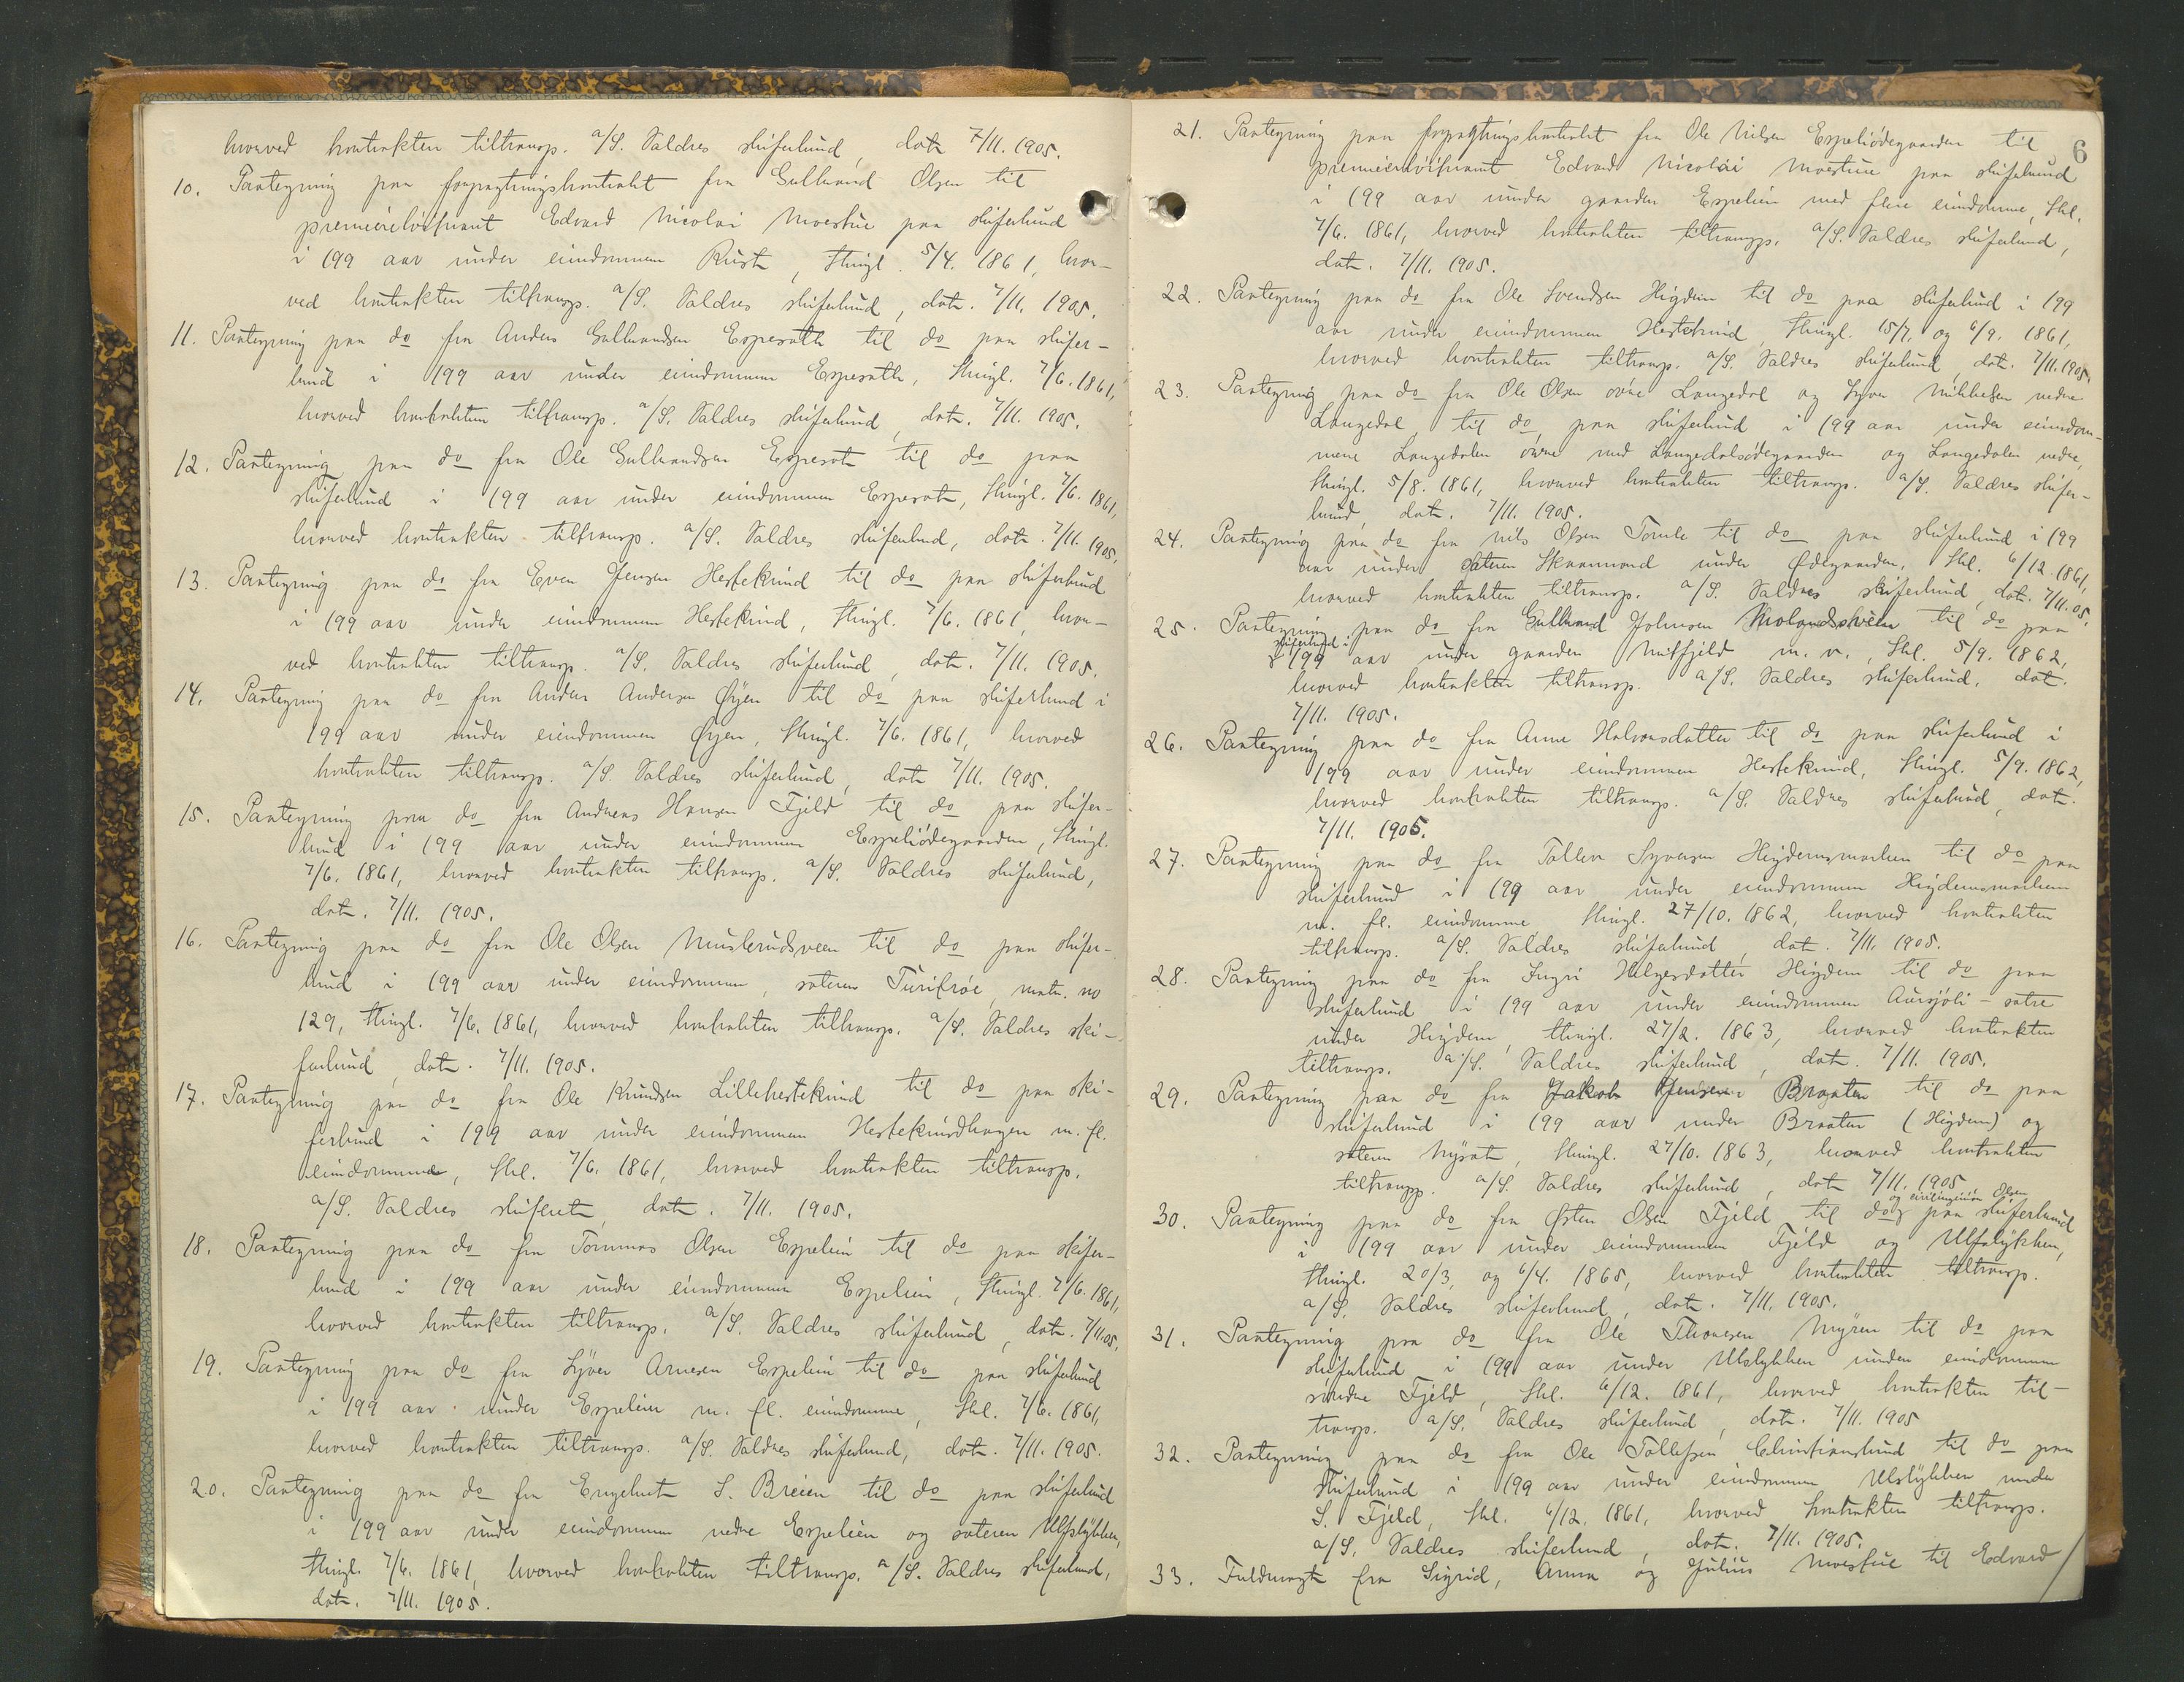 hvorved kontrakten tiltransp. a/S. Valdres skiferbrud, dat. 7/11. 1905.
10. Paategning paa forpagtningskontrakt fra Gulbrand Olsen til
premierløitnant Edvard Nicolai Moestue paa skiferbrud
i 199 aar under eiendommen Rust, thingl. 5/4. 1861, hvor-
ved kontrakten tiltransp. a/S. Valdres skiferbrud, dat. 7/11. 1905.
11. Paategning paa do fra Anders Gulbrandsen Esperath til do paa skifer-
brud i 199 aar under eiendommen Esperath, thingl. 7/6. 1861,
hvorved kontrakten tiltransp. a/S. Valdres skiferbrud, dat. 7/11. 1905.
12. Paategning paa do fra Ole Gulbrandsen Esperat til do paa
skiferbrud i 199 aar under eiendommen Esperat, thingl. 7/6. 1861,
hvorved kontrakten tiltransp. a/S. Valdres skiferbrud, dat. 7/11. 1905.
13. Paategning paa do fra Even Jensen Hestekind til do paa skiferbrud
i 199 aar under eiendommen Hestekind, thingl. 7/6. 1861, hvor-
ved kontrakten tiltransp. a/S. Valdres skiferbrud, dat. 7/11. 1905.
14. Paategning paa do fra Anders Andersen Øyen til do paa skiferbrud i
199 aar under eiendommen Øyen, thingl. 7/6. 1861, hvorved
kontrakten tiltransp. a/S. Valdres skiferbrud, dat. 7/11. 1905.
15. Paategning paa do fra Andreas Hansen Fjeld til do paa skifer-
brud i 199 aar under eiendommen Espeliødegaarden, thingl.
7/6. 1861, hvorved kontrakten tiltransp. a/S. Valdres skiferbrud,
dat. 7/11. 1905.
16. Paategning paa do fra Ole Olsen Muslerudsveen til do paa skifer-
brud i 199 aar under eiendommen, sæteren matr. no
129, thingl. 7/6. 1861, hvorved kontrakten tiltransp. a/S. Valdres ski-
ferbrud, dat. 7/11. 1905.
17. Paategning paa do fra Ole Knudsen Lillehestekind til do paa ski-
ferbrud i 199 aar under eiendommen Hestekindhagen m. fl.
eiendomme, thl. 7/6. 1861, hvorved kontrakten tiltransp.
a/S. Valdres skiferet, dat. 7/11. 1905.
18. Paategning paa do fra Tommas Olsen Espelien til do paa skifer-
brud i 199 aar under eiendommen Espelien, thingl. 7/6. 1861,
hvorved kontrakten tiltransp. a/S. Valdres skiferbrud, dat. 7/11.05.
19. Paategning paa do fra Syver Arnesen Espelien til do paa skiferbrud
i 199 aar under Espelien m. fl. eiendomme, thl. 7/6. 1861,
hvorved kontrakten tiltransp. a/S. Valdres skiferbrud, dat. 7/11. 1905.
20. Paategning paa do fra Engebret S. Breien til do paa skiferbrud
i 199 aar under eiendommen nedre Espelien og sæteren Ulfslykken,
thingl. 7/6. 1861, hvorved kontrakten tiltransp. a/S. Valdres skiferbrud,
dat. 7/11. 1905.
6
21. Paategning paa forpagtningskontrakt fra Ole Nilsen Espeliødegaarden til
premierløitnant Edvard Nicolai Moestue paa skiferbrud
i 199 aar under gaarden Espelien med flere eiendomme, thl.
7/6. 1861, hvorved kontrakten tiltransp. a/S. Valdres skiferbrud,
dat. 7/11. 1905.
22. Paategning paa do fra Ole Svendsen Høgdem til do paa skiferbrud i 199
aar under eiendommen Hestekind, thingl. 15/7. og 6/9. 1861,
hvorved kontrakten tiltransp. a/S. Valdres skiferbrud, dat. 7/11. 1905.
23. Paategning paa do fra Ole Olsen øvre Langedal og Syver Mikkelsen nedre
Langedal til do paa skiferbrud i 199 aar under eiendom-
mene Langedalen øvre med Langedalsødegaarden og Langedalen nedre,
thingl. 5/8. 1861, hvorved kontrakten tiltransp. a/S. Valdres skifer-
brud, dat. 7/11. 1905.
24. Paategning paa do fra Nils Olsen Tomle til do paa skiferbrud i 199
aar under sæteren under Ødegaarden, thl. 6/12. 1861,
hvorved kontrakten tiltransp. a/S. Valdres skiferbrud, dat. 7/11.05.
25. Paategning paa do fra Gulbrand Johnsen til do paa
skiferbrud i
199 aar under gaarden Midtfjeld m. v., thl. 5/9. 1862,
hvorved kontrakten tiltransp. a/S. Valdres skiferbrud, dat.
7/11. 1905.
26. Paategning paa do fra Anne Halvorsdatter til do paa skiferbrud i
199 aar under eiendommen Hestekind, thingl. 5/9. 1862,
hvorved kontrakten tiltransp. a/S. Valdres skiferbrud, dat.
7/11. 1905.
27. Paategning paa do fra Tollev Syversen Høgdemsmarken til do paa
skiferbrud i 199 aar under eiendommen Høgdemsmarken
m. fl. eiendomme thingl. 27/10. 1862, hvorved kontrakten
tiltransp. a/S. Valdres skiferbrud, dat. 7/11. 1905.
28. Paategning paa do fra Ingri Helgesdatter Høgdem til do paa
skiferbrud i 199 aar under eiendommen Aursjøli-sætre
under Høgdem, thingl. 27/2. 1863, hvorved kontrakten
tiltransp. a/S. Valdres skiferbrud, dat. 7/11. 1905.
29. Paategning paa do fra Jakob Jensen Braaten til do paa
skiferbrud i 199 aar under Braaten (Høgdem) og
sæteren Nysæt, thingl. 27/10. 1863, hvorved kontrakten
tiltransp. a/S. Valdres skiferbrud, dat. 7/11. 1905
og civilingeniør Olsen
30. Paategning paa do fra Østen Olsen Fjeld til do paa skiferbrud
i 199 aar under eiendommen Fjeld og Ulfslykken,
thingl. 20/3. og 6/4. 1865, hvorved kontrakten tiltransp.
a/S. Valdres skiferbrud, dat. 7/11. 1905.
31. Paategning paa do fra Ole Thoresen Myren til do paa
skiferbrud i 199 aar under Ulslykken under eiendommen
søndre Fjeld, thl. 6/12. 1861, hvorved kontrakten til-
transp. a/S. Valdres skiferbrud, dat. 7/11. 1905
32. Paategning paa do fra Ole Tollefsen Christianslund til do paa
skiferbrud i 199 aar under eiendommen Ulslykken under
S. Fjeld, thl. 6/12. 1861, hvorved kontrakten tiltransp.
a/S. Valdres skiferbrud, dat. 7/11. 1905.
33. Fuldmagt fra Sigrid, Anna og Julius Moestue til Edvard